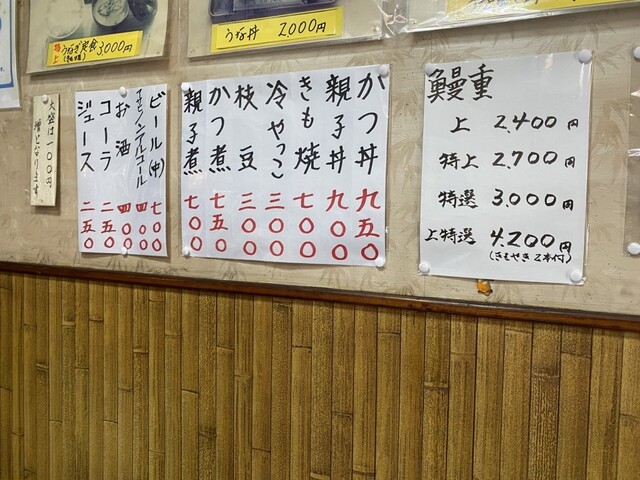 うな丼 2,000円
3,000円
鰻重
上 2,400円
特上 2,700円
特選 3,000円
上特選 4,200円
(きもやき2本付)
かつ丼 九五〇
親子丼 九〇〇
きも焼 七〇〇
冷やっこ 三〇〇
枝豆 三〇〇
かつ煮 七五〇
親子煮 七〇〇
ビール(中) 七〇〇
ノンアルコール 四〇〇
お酒 四〇〇
コーラ 二五〇
ジュース 二五〇
大盛は一〇〇円
増となります